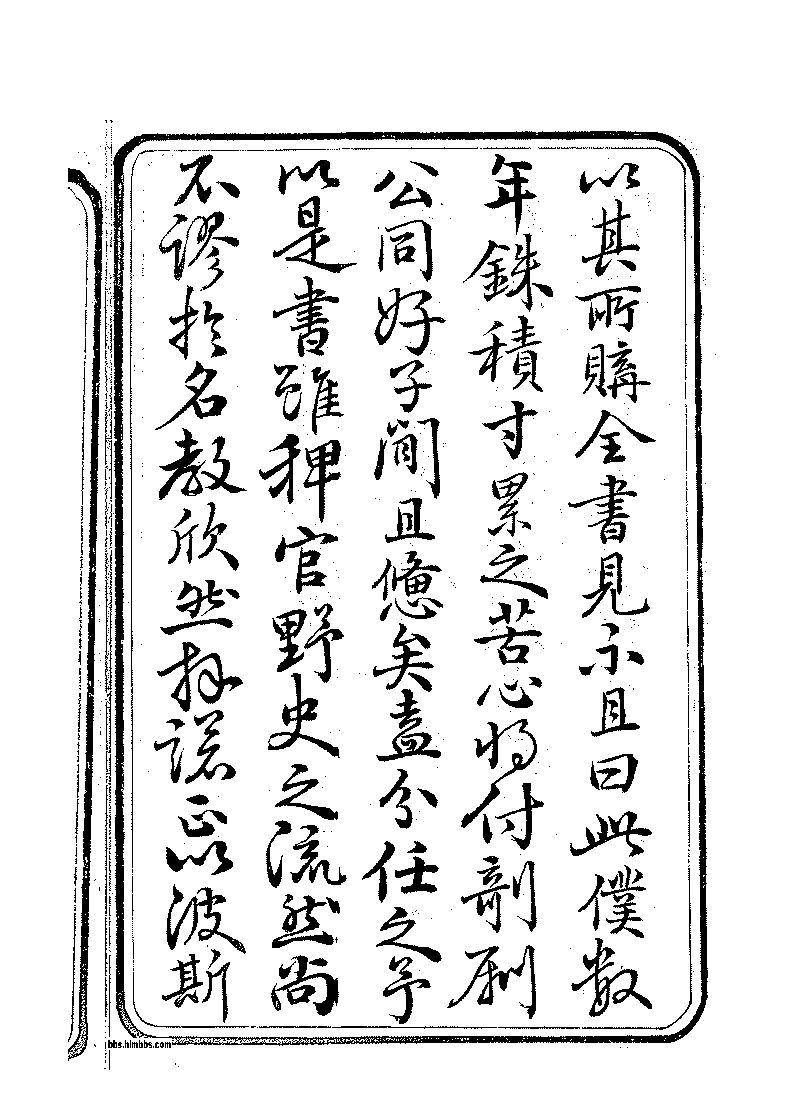 以其所購全書見示且曰此僕數
年銖積寸累之苦心將付剞劂
公同好子閒且憊矣盍分任之予
以是書雖稗官野史之流然尚
不謬於名教欣然拜諾正以波斯
bbs.hlmbbs.com